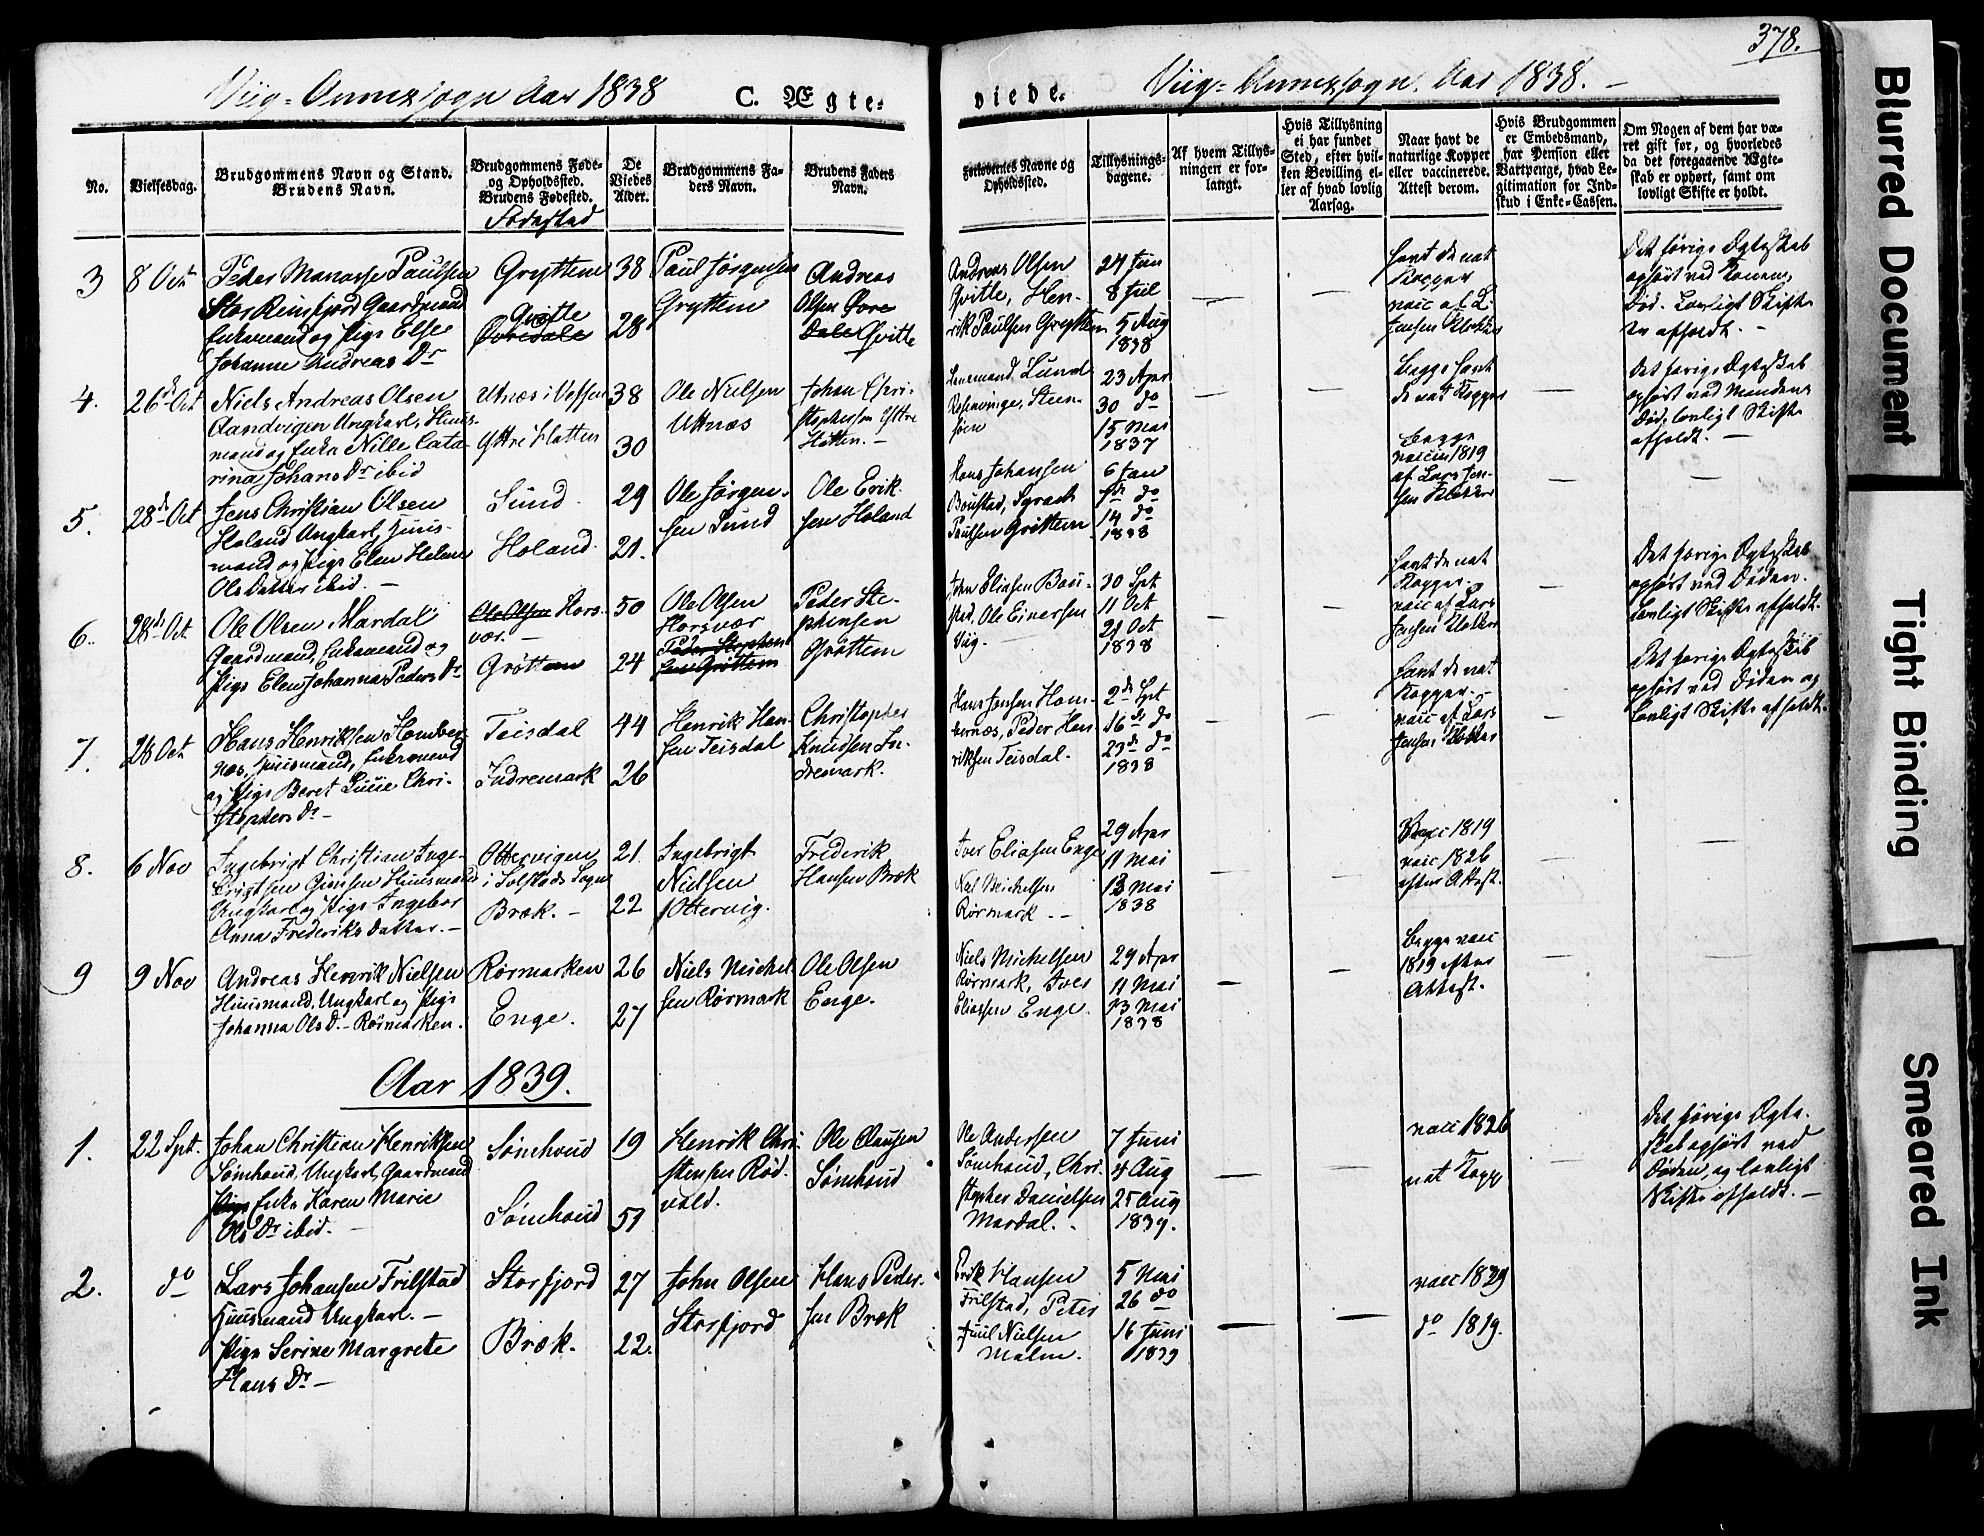 378.
Viig-Annexsogn Aar 1838
C. Ægte-
viede.
Viig-Annexsogn Aar 1838.
No.
Vielsesdag.
Brudgommens Navn og Stand.
Brudens Navn.
Brudgommens Føde-
og Opholdssted.
Brudens Fødested.
Fødestad
De
Viedes
Alder.
Brudgommens Fa-
ders Navn.
Brudens Faders
Navn.
Forlovernes Navne og
Opholdssted.
Tillysnings-
dagene.
Af hvem Tillys-
ningen er for-
langt.
Hvis Tillysning
ei har fundet
Sted, efter hvil-
ken Bevilling el-
ler af hvad lovlig
Aarsag.
Naar havt de
naturlige Kopper
eller vaccinerede.
Attest derom.
Hvis Brudgommen
er Embedsmand,
har Pension eller
Vartpenge, hvad Le-
gitimation for Ind-
skud i Enke-Cassen.
Om Nogen af dem har væ-
ret gift før, og hvorledes
da det foregaaende Ægte-
skab er ophørt, samt om
lovligt Skifte er holdt.
3
8 Oct
Peder Manasse Paulsen
Stor Reinsfjord Gaardmand
Enkemand og Pige Else
Johanne Andreas Dr
Gryttem
Qvitte
Øvredale
38
28
Paul Jørgensen
Gryttem
Andreas
Olsen Øvre
Dale Qvitte
Andreas Olsen
Qvitte, Hen-
rik Paulsen Gryttem
24 Jun
8 Jul
5 Aug
1838
havt de nat
Kopper
vaic af L.
Jensen Klokker
Det førige Ægteskab
ophørt ved Konens
Død. Lovligt Skifte
er afholdt. -
4.
26de Oct
Niels Andreas Olsen
Aandvigen Ungkarl, Huus-
mand og Enke Nille Cata-
rina Johans Dr ibid
Utnæs i Vefsen
Yttre Hatten
38
30
Ole Nielsen
Uttnæs
Johan Chri-
stophersen Yttre
Hatten. -
Lensmand Lund
Rosenvinge, Steen-
søen
23 Apr
30 do
15 Mai
1837
Begge havt
de nat Kopper
Det førige Ægteskab
ophørt ved Mandens
Død, lovligt Skifte
afholdt. -
5.
28de Oct
Jens Christian Olsen
Holand Ungkarl, Huus-
mand og Pige Elen Helene
Ols Datter ibid. -
Sund
Holand.
29
21.
Ole Jørgen-
sen Sund
Ole Erik-
sen Holand
Hans Johansen
Boustad, Syrach
Paulsen Gröttem
6 Jan
7de do
14 do
1838
Begge
vaicin 1819
af Lars Jen-
sen Klokker
6.
28de Oct
Ole Olsen Mardal
Gaardmand, Enkemand og
Pige Elen Johanna Peders Dr
Ole Olsen Hors-
vær. -
Gröttem
50
24
Ole Olsen
Horsvær
Peder Stephen-
sen Gröttem
Peder Ste-
phensen
Gröttem
John Eliasen Bou-
stad, Ole Einersen
Viig.
30 Spt
11 Oct
21 Oct
1838
havt de nat
Kopper.
vaic af Lars
Jensen Klokker
Det førige Ægteskab
ophørt ved Døden.
Lovligt Skifte afholdt.
7.
28 Oct
Hans Henriksen Homber-
næs, Huusmand, Enkemand
og Pige Beret Lucie Chri-
stophers Dr -
Teisdal
Indremark
44
26
Henrik Han-
sen Teisdal
Christopher
Knudsen In-
dremark.
Hans Jensen Hom-
bernæs, Peder Hen-
riksen Teisdal.
2de Spt
16de do
23de do
1838
havt de nat
Kopper. -
vaic af Lars
Jensen Klokker
Det førige Ægteskab
ophørt ved Døden og
lovligt Skifte afholdt.
8.
6 Nov
Ingebrigt Christian Inge-
brigtsen Giensen Huusmand
Ungkarl og Pige Ingebor
Anna Frederiks Datter. -
Ottervigen
i Solstads Sogn
Bræk. -
21.
22
Ingebrigt
Nielsen
Ottervig.
Frederik
Hansen Bræk
Iver Eliasen Enge
Niels Michelsen
Rørmark - -
29 Apr
11 Mai
13 Mai
1838
vaic 1819
vaic 1826
efter Attest.
9
9 Nov
Andreas Henrik Nielsen
Huusmand, Ungkarl og Pige
Johanna Ols D. - Rørmarken.
Rørmarken
Enge.
26
27
Niels Michel-
sen Rørmark
Ole Olsen
Enge.
Niels Michelsen
Rørmark, Iver
Eliassen Enge
29 Apr
11 Mai
13 Mai
1838
begge vaic
1819 efter
Attest.
Aar 1839.
1.
22 Spt.
Johan Christian Henriksen
Sømhoud, Ungkarl, Gaardmand
Pige Enke Karen Marie
Ols Dr ibid.
Sømhoud
Sømhoud
19
51
Henrik Chri-
stensen Rød-
vold.
Ole Clausen
Sømhoud
Ole Andersen
Sømhoud, Chri-
stopher Danielsen
Mardal.
7 Juni
4 Aug
25 Aug
1839.
vaic 1826
nat Kopp
Det førige Ægte-
skab ophørt ved
Døden, og lovligt
Skifte afholdt. -
2.
do
Lars Johansen Trilstad
Huusmand Ungkarl. -
Pige Serine Margrete
Hans Dr -
Storfjord
Bræk.
27
22.
John Olsen
Storfjord
Hans Peder-
sen Bræk
Erik Hansen
Trilstad, Peter
Juul Nielsen
Malm.
5 Mai
26 do
16 Juni
1839
vaic 1829
do 1819.
Blurred Document
Tight Binding
Smeared Ink